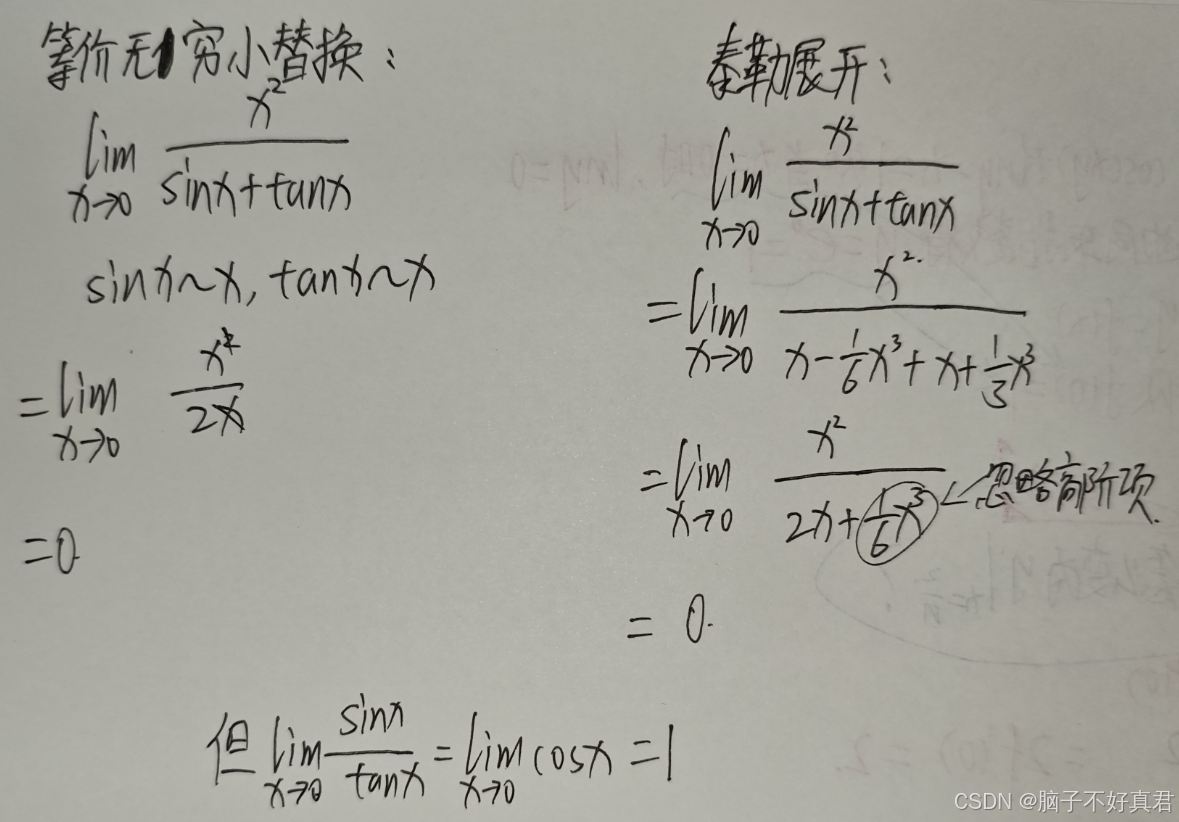 等价无穷小替换:
lim x→0 x²/(sinx+tanx)
sinx~x, tanx~x
=lim x→0 x²/2x
=0
泰勒展开:
lim x→0 x²/(sinx+tanx)
=lim x→0 x²/(x-1/6x³+x+1/3x³)
=lim x→0 x²/(2x+1/6x³) ←忽略高阶项.
= 0.
但 lim x→0 sinx/tanx = lim x→0 cosx =1
CSDN @脑子不好真君